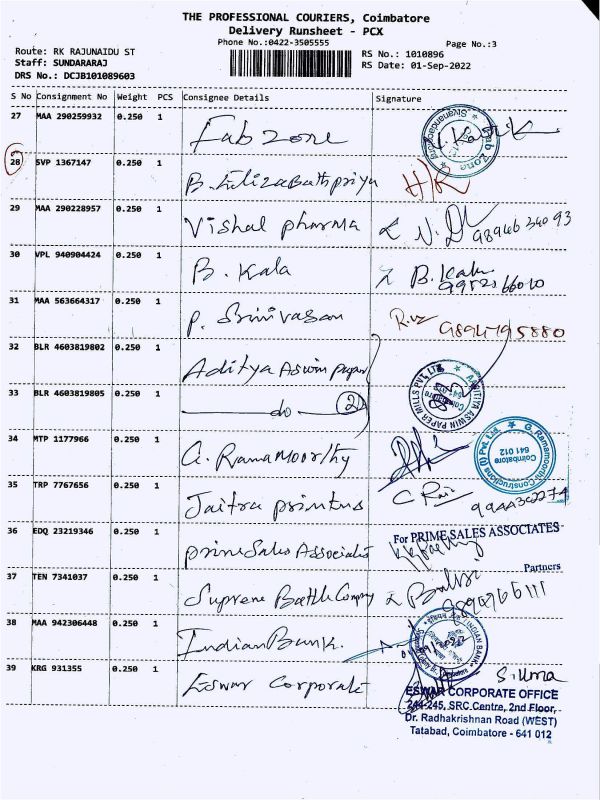 THE PROFESSIONAL COURIERS, Coimbatore
Delivery Runsheet - PCX
Phone No.:0422-3505555
Page No.:3
Route: RK RAJUNAIDU ST
RS No.: 1010896
Staff: SUNDARARAJ
RS Date: 01-Sep-2022
DRS No.: DCJB101089603
S No Consignment No Weight PCS Consignee Details Signature
27 MAA 290259932 0.250 1 Fab zone
28 SVP 1367147 0.250 1 B. Elizabathpriya
29 MAA 290228957 0.250 1 Vishal pharma
30 VPL 940904424 0.250 1 B. Kala
31 MAA 563664317 0.250 1 P. Srinivasan
32 BLR 4603819802 0.250 1 Aditya Aswin paper
33 BLR 4603819805 0.250 1 do 2
AADITYA ASWIN PAPER MILLS PVT. LTD.
34 MTP 1177966 0.250 1 G. Ramamoorthy
G. Ramamoorthi Constructions (I) Pvt. Ltd.
Coimbatore
641 012
35 TRP 7767656 0.250 1 Jaitra printers
36 EDQ 23219346 0.250 1 prime Sales Associates
For PRIME SALES ASSOCIATES
Partners
37 TEN 7341037 0.250 1 Supreme Battle Company
38 MAA 942306448 0.250 1 Indian Bank.
INDIAN BANK
39 KRG 931355 0.250 1 Eswar Corporate
ESWAR CORPORATE OFFICE
244-245, SRC.Centre, 2nd Floor,
Dr. Radhakrishnan Road (WEST)
Tatabad, Coimbatore - 641 012